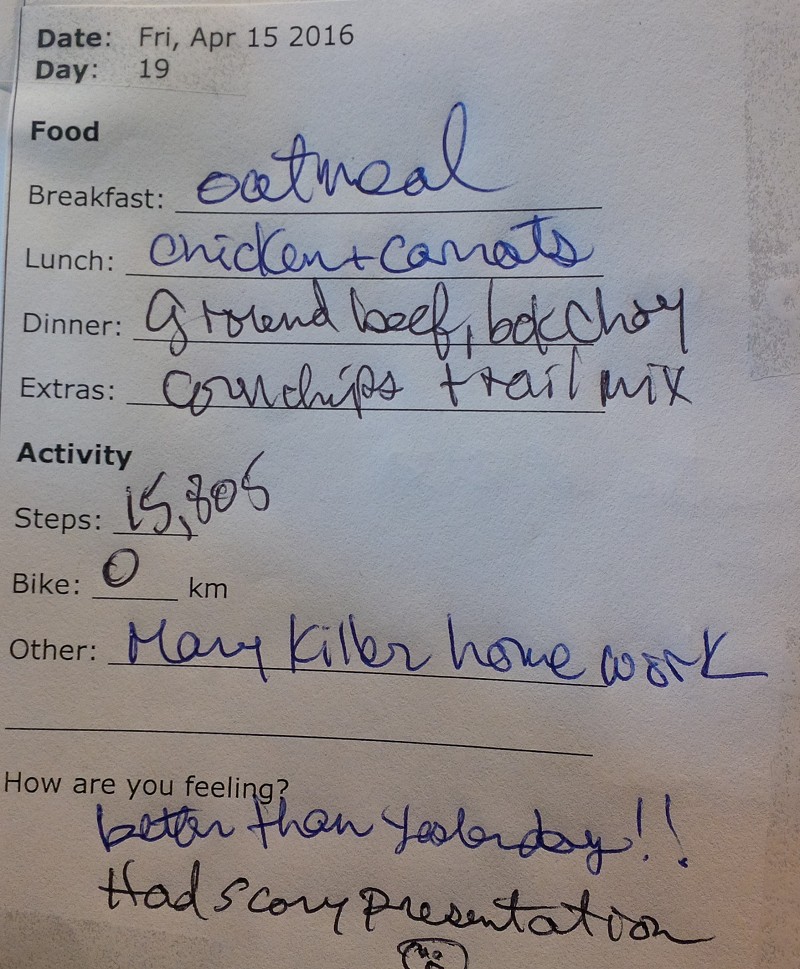 Date: Fri, Apr 15 2016
Day: 19
Food
Breakfast: oatmeal
Lunch: chicken + carrots
Dinner: ground beef, bok choy
Extras: cornchips trail mix
Activity
Steps: 15,805
Bike: 0 km
Other: Mary Killer home work
How are you feeling?
better than yesterday!!
Had scary presentation